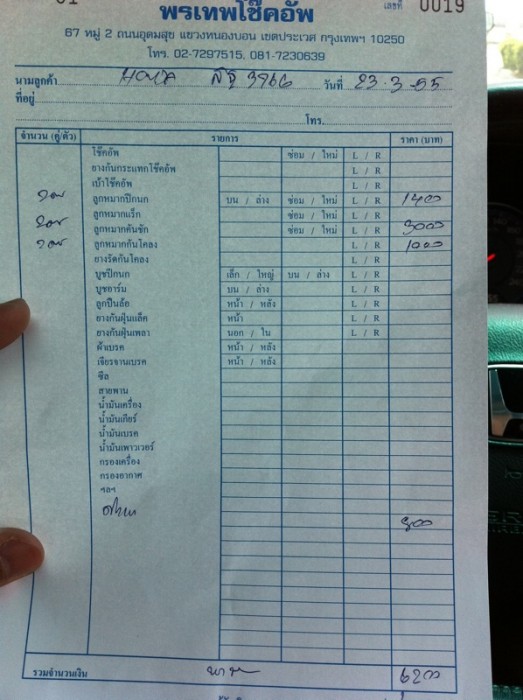 พรเทพโช๊คอัพ
เลขที่ 0019
67 หมู่ 2 ถนนอุดมสุข แขวงหนองบอน เขตประเวศ กรุงเทพฯ 10250
โทร. 02-7297515, 081-7230639
นามลูกค้า 3966 วันที่ 23-3-55
ที่อยู่
โทร.
จำนวน (คู่/ตัว) รายการ ราคา (บาท)
โช๊คอัพ ซ่อม / ใหม่ L / R
ยางกันกระแทกโช๊คอัพ L / R
เบ้าโช๊คอัพ L / R
ลูกหมากปีกนก บน / ล่าง ซ่อม / ใหม่ L / R 1400
ลูกหมากแร็ก ซ่อม / ใหม่ L / R
ลูกหมากคันชัก ซ่อม / ใหม่ L / R 3000
ลูกหมากกันโคลง L / R 1000
ยางรัดกันโคลง L / R
บูชปีกนก เล็ก / ใหญ่ บน / ล่าง L / R
บูชอาร์ม บน / ล่าง L / R
ลูกปืนล้อ หน้า / หลัง L / R
ยางกันฝุ่นแล็ค หน้า L / R
ยางกันฝุ่นเพลา นอก / ใน L / R
ผ้าเบรค หน้า / หลัง
เจียรจานเบรค หน้า / หลัง
ซีล
สายพาน
น้ำมันเครื่อง
น้ำมันเกียร์
น้ำมันเบรค
น้ำมันเพาเวอร์
กรองเครื่อง
กรองอากาศ
ฯลฯ
800
รวมจำนวนเงิน 6200